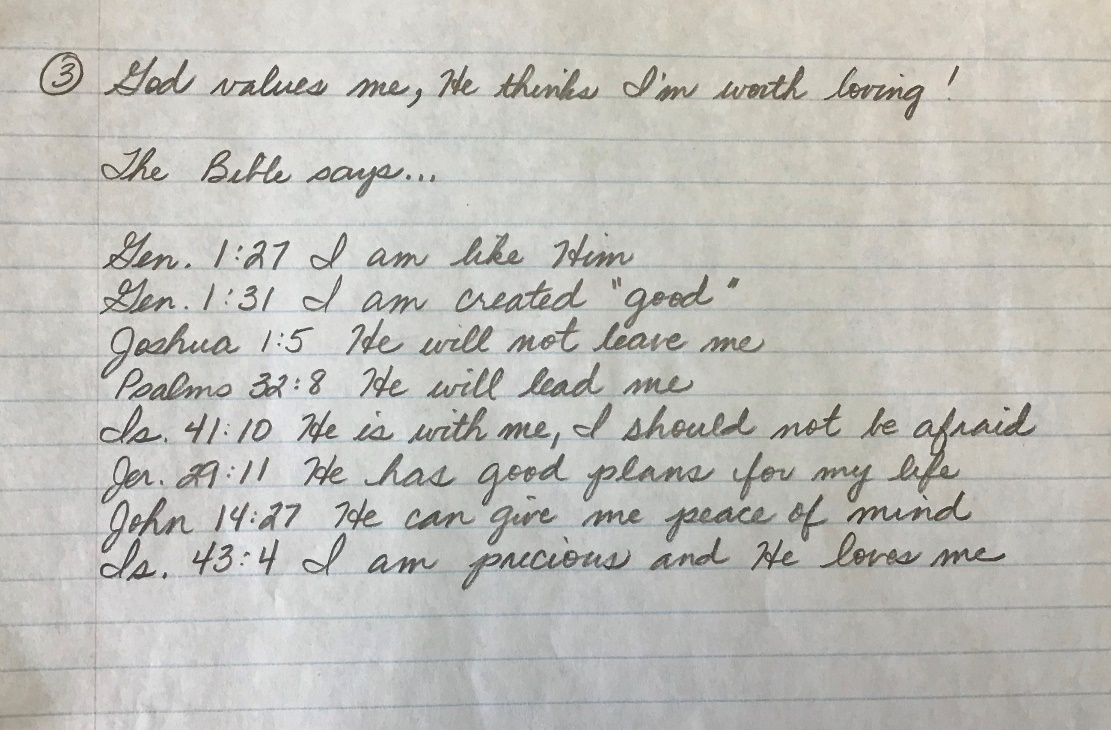 ③ God values me, He thinks I'm worth loving!
The Bible says...
Gen. 1:27 I am like Him
Gen. 1:31 I am created "good"
Joshua 1:5 He will not leave me
Psalms 32:8 He will lead me
Is. 41:10 He is with me, I should not be afraid
Jer. 29:11 He has good plans for my life
John 14:27 He can give me peace of mind
Is. 43:4 I am precious and He loves me